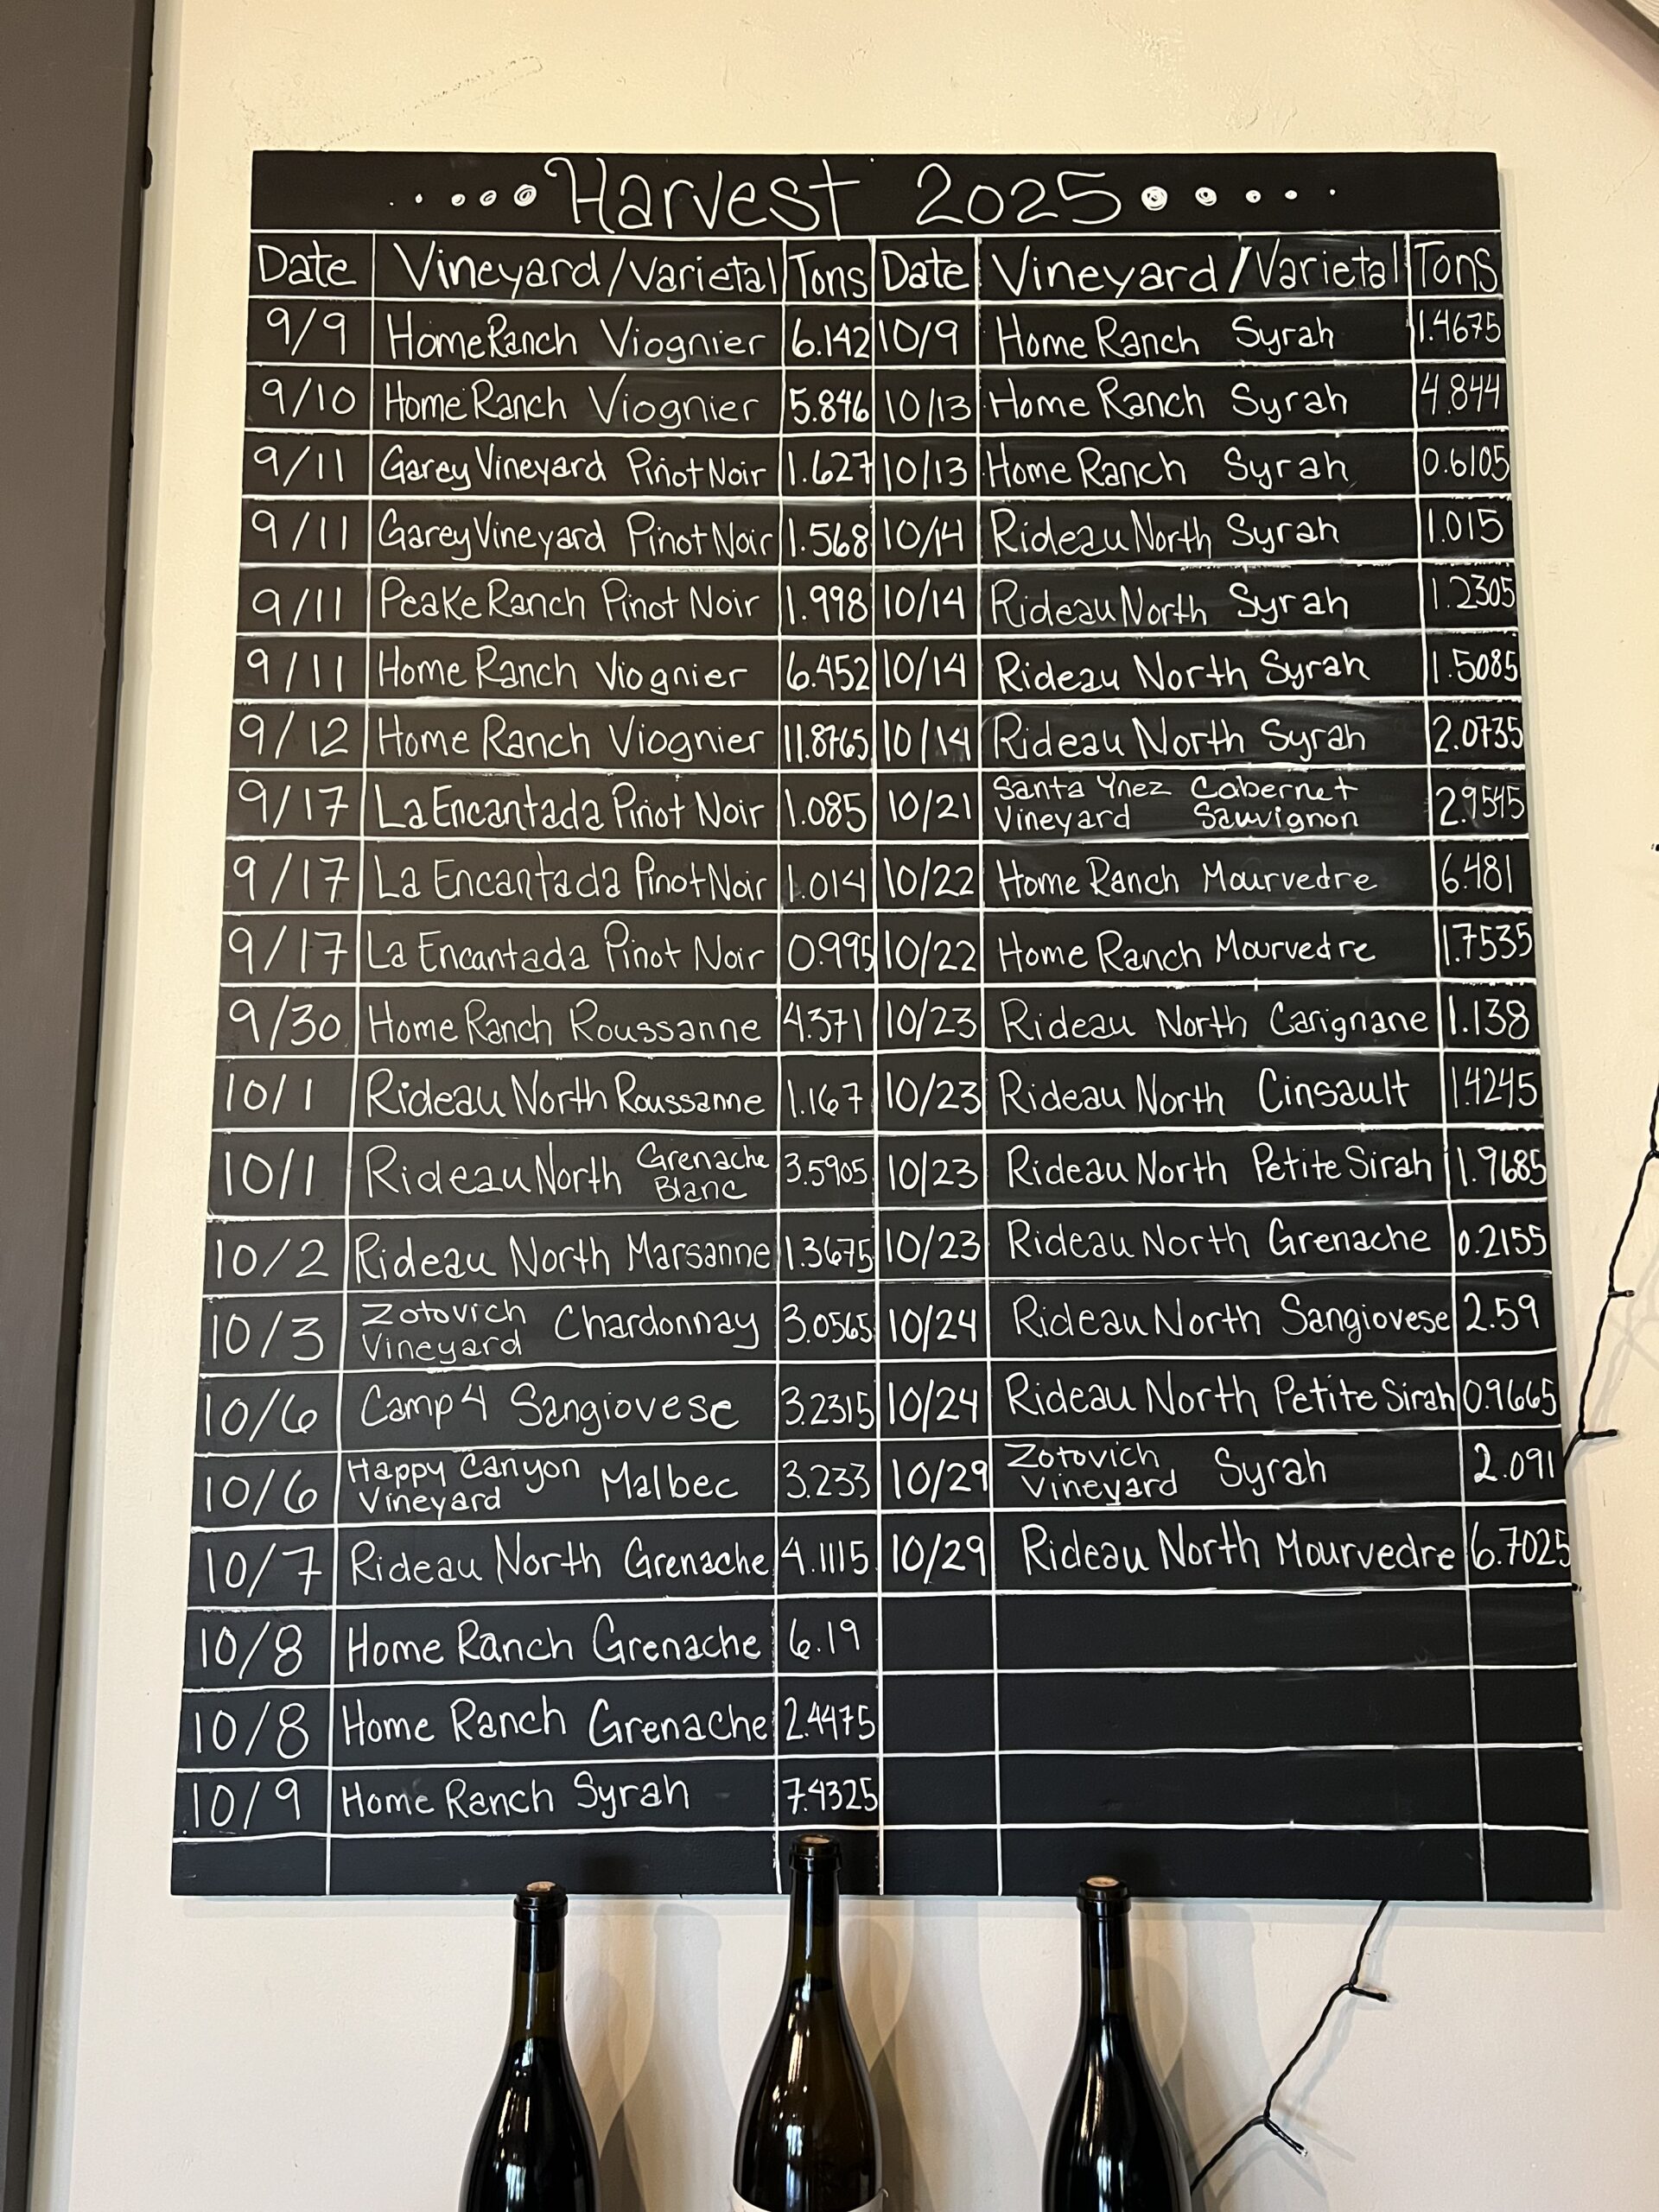 Harvest 2025
Date Vineyard/Varietal Tons Date Vineyard/Varietal Tons
9/9 Home Ranch Viognier 6.142 10/9 Home Ranch Syrah 1.4675
9/10 Home Ranch Viognier 5.846 10/13 Home Ranch Syrah 4.844
9/11 Garey Vineyard Pinot Noir 1.627 10/13 Home Ranch Syrah 0.6105
9/11 Garey Vineyard Pinot Noir 1.568 10/14 Rideau North Syrah 1.015
9/11 Peake Ranch Pinot Noir 1.998 10/14 Rideau North Syrah 1.2305
9/11 Home Ranch Viognier 6.452 10/14 Rideau North Syrah 1.5085
9/12 Home Ranch Viognier 11.8765 10/14 Rideau North Syrah 2.0735
9/17 La Encantada Pinot Noir 1.085 10/21 Santa Ynez Vineyard Cabernet Sauvignon 2.9545
9/17 La Encantada Pinot Noir 1.014 10/22 Home Ranch Mourvedre 6.481
9/17 La Encantada Pinot Noir 0.995 10/22 Home Ranch Mourvedre 1.7535
9/30 Home Ranch Roussanne 4.371 10/23 Rideau North Carignane 1.138
10/1 Rideau North Roussanne 1.167 10/23 Rideau North Cinsault 1.4245
10/1 Rideau North Grenache Blanc 3.5905 10/23 Rideau North Petite Sirah 1.9685
10/2 Rideau North Marsanne 1.3675 10/23 Rideau North Grenache 0.2155
10/3 Zotovich Vineyard Chardonnay 3.0565 10/24 Rideau North Sangiovese 2.59
10/6 Camp 4 Sangiovese 3.2315 10/24 Rideau North Petite Sirah 0.9665
10/6 Happy Canyon Vineyard Malbec 3.233 10/29 Zotovich Vineyard Syrah 2.091
10/7 Rideau North Grenache 4.1115 10/29 Rideau North Mourvedre 6.7025
10/8 Home Ranch Grenache 6.19
10/8 Home Ranch Grenache 2.4475
10/9 Home Ranch Syrah 7.4325